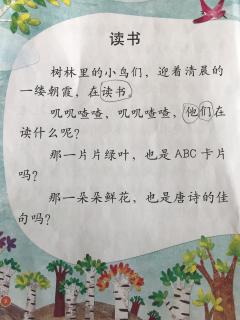 读书
树林里的小鸟们，迎着清晨的
一缕朝霞，在读书。
叽叽喳喳，叽叽喳喳，他们在
读什么呢？
那一片片绿叶，也是ABC卡片
吗？
那一朵朵鲜花，也是唐诗的佳
句吗？